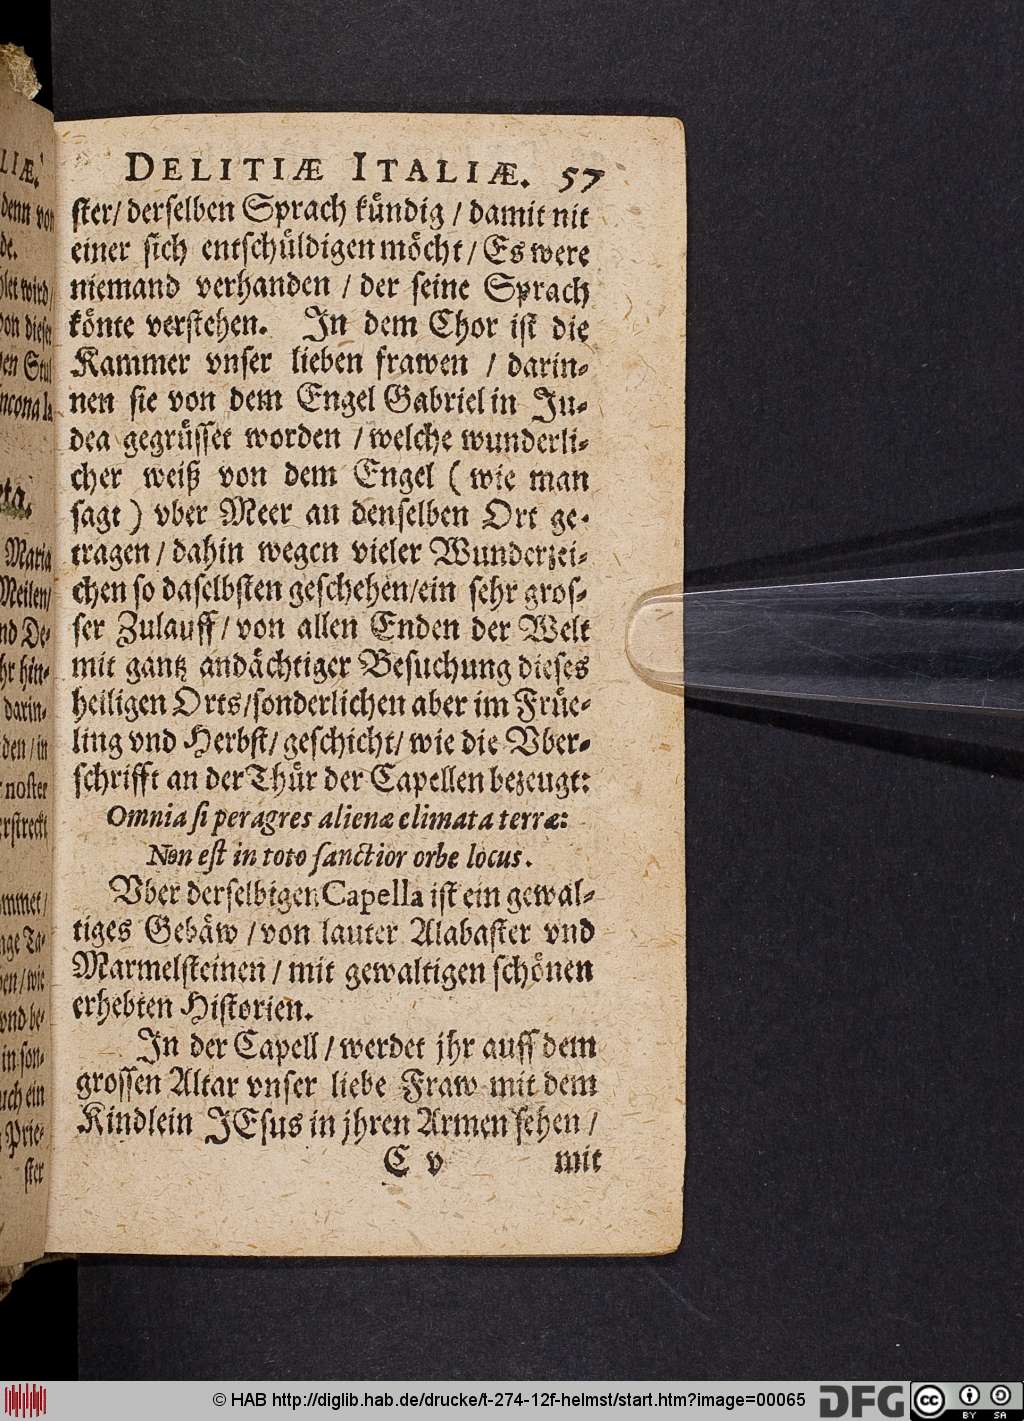 DELITIÆ ITALIÆ. 57
ster/ derselben Sprach kündig / damit nit
einer sich entschüldigen möcht / Es were
niemand verhanden / der seine Sprach
könte verstehen. In dem Chor ist die
Kammer vnser lieben frawen / darin-
nen sie von dem Engel Gabriel in Ju-
dea gegrüsset worden / welche wunderli-
cher weiß von dem Engel ( wie man
sagt ) vber Meer an denselben Ort ge-
tragen / dahin wegen vieler Wunderzei-
chen so daselbsten geschehen/ein sehr gros-
ser Zulauff / von allen Enden der Welt
mit gantz andächtiger Besuchung dieses
heiligen Orts/sonderlichen aber im Früe-
ling vnd Herbst/ geschicht/ wie die Vber-
schrifft an der Thür der Capellen bezeugt:
Omnia si peragres alienæ climata terræ:
Non est in toto sanctior orbe locus.
Vber derselbigen Capella ist ein gewal-
tiges Gebäw / von lauter Alabaster vnd
Marmelsteinen / mit gewaltigen schönen
erhebten Historien.
In der Capell / werdet jhr auff dem
grossen Altar vnser liebe Fraw mit dem
Kindlein JEsus in jhren Armen sehen /
C v mit
LIÆ.
denn von
de.
wird/
von dieser
ncona
Maria
Meilen/
nd De-
hr hin-
darin-
den / in
noster
erstreckt
mmet/
nge Ta-
ben / wie
vnd be-
in son-
uch ein
Prie-
ster
© HAB http://diglib.hab.de/drucke/t-274-12f-helmst/start.htm?image=00065
DFG
cc BY SA